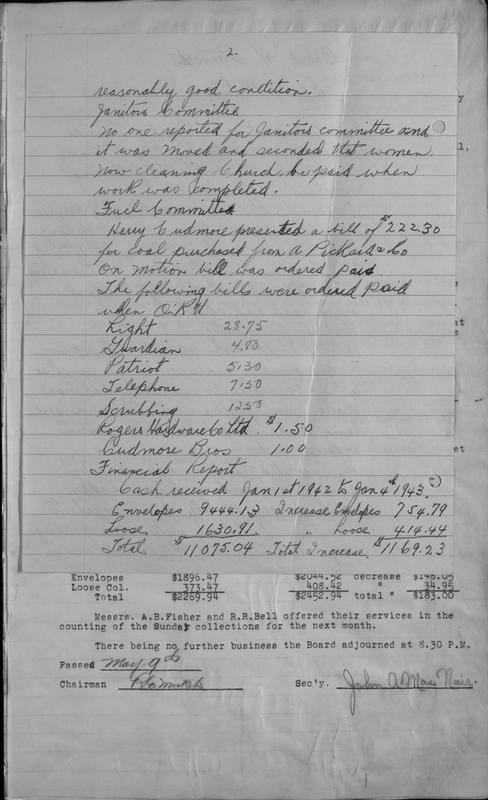 2.
reasonably good condition.
Janitors Committee
No one reported for Janitors committee and
it was moved and seconded that women
now cleaning Church be paid when
work was completed.
Fuel Committee
Harry Cudmore presented a bill of $222.30
for coal purchased from A Pickard & Co
On motion bill was ordered paid.
The following bills were ordered paid
when O.K'd
Light 28.75
Guardian 4.80
Patriot 5.30
Telephone 7.50
Scrubbing 12.50
Rogers Hardware Co Ltd. $1.50
Cudmore Bros 1.00
Financial Report
Cash received Jan 1st 1942 to Jan 4th 1943.
Envelopes 9444.13 Increase Envelopes 754.79
Loose 1630.91. " Loose 414.44
Total $11075.04 Total Increase $1169.23
Envelopes $1896.47 $2044.52 decrease $148.05
Loose Col. 373.47 408.42 " 34.95
Total $2269.94 $2452.94 total " $183.00
Messrs. A.B.Fisher and R.R.Bell offered their services in the
counting of the Sunday collections for the next month.
There being no further business the Board adjourned at 8.30 P.M.
Passed May 9th
Chairman Sec'y. John A Mac Nair.